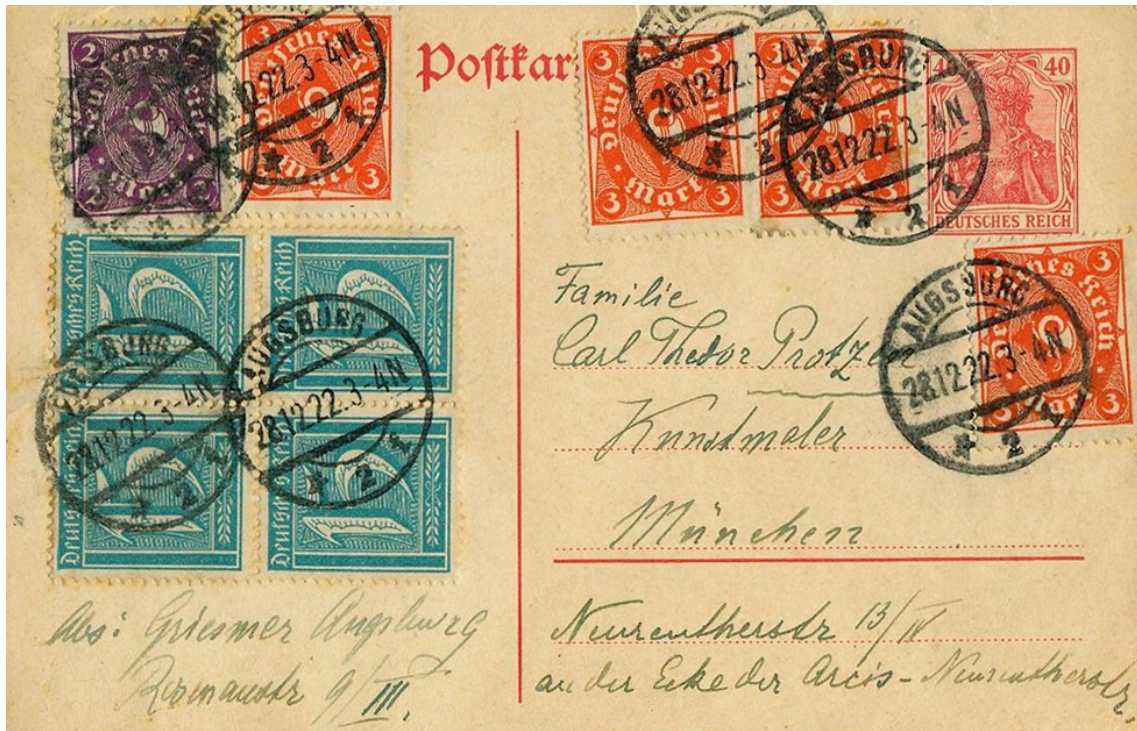 Postkar
2 2
Deutsches Reich
Mark
3
Deutsches Reich
3 Mark 3
3 3
Deutsches Reich
3 Mark 3
3 3
Deutsches Reich
3 Mark 3
40 40
DEUTSCHES REICH
3
Deutsches Reich
Mark 3
Deutsches Reich
Deutsches Reich
Deutsches Reich
Deutsches Reich
AUGSBURG
28.12.22.3-4N
* 2 1
AUGSBURG
28.12.22.3-4N
* 2 1
AUGSBURG
28.12.22.3-4N
* 2 1
AUGSBURG
28.12.22.3-4N
* 2 1
AUGSBURG
28.12.22.3-4N
* 2 1
Familie
Carl Thedor Protzen
Kunstmaler
München
Neureutherstr 13/IV
an der Ecke der Arcis-Neureutherstr.
Abs: Griesmer Augsburg
Rosenaustr 9/III.